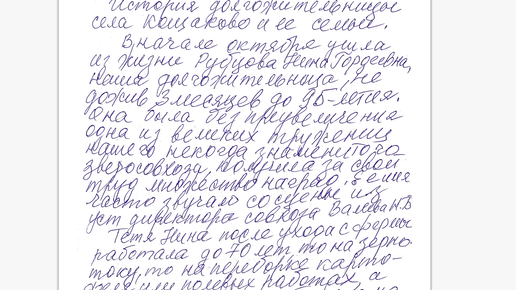 История долгожительницы
села Кощаково и ее семьи.
В начале октября ушла
из жизни Рубцова Нина Гордеевна,
наша долгожительница, не
дожив 3 месяцев до 95-летия.
Она была без преувеличения
одна из великих тружениц
нашего некогда знаменитого
зверосовхоза, получила за свой
труд множество наград, её имя
часто звучало со сцены из
уст директора совхоза Валеева Н.В
Тетя Нина после ухода с фермы
работала до 70 лет то на зерно-
току, то на переборке карто-
феля или полевых работах, а